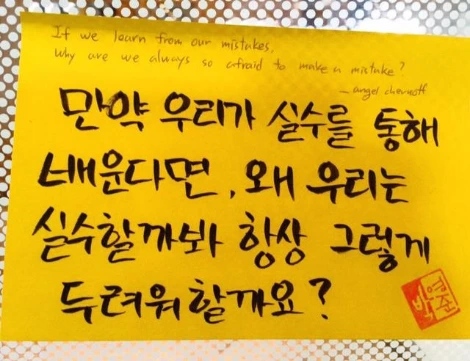 If we learn from our mistakes,
why are we always so afraid to make a mistake?
- angel chernoff
만약 우리가 실수를 통해
배운다면, 왜 우리는
실수할까봐 항상 그렇게
두려워할까요?
박영준